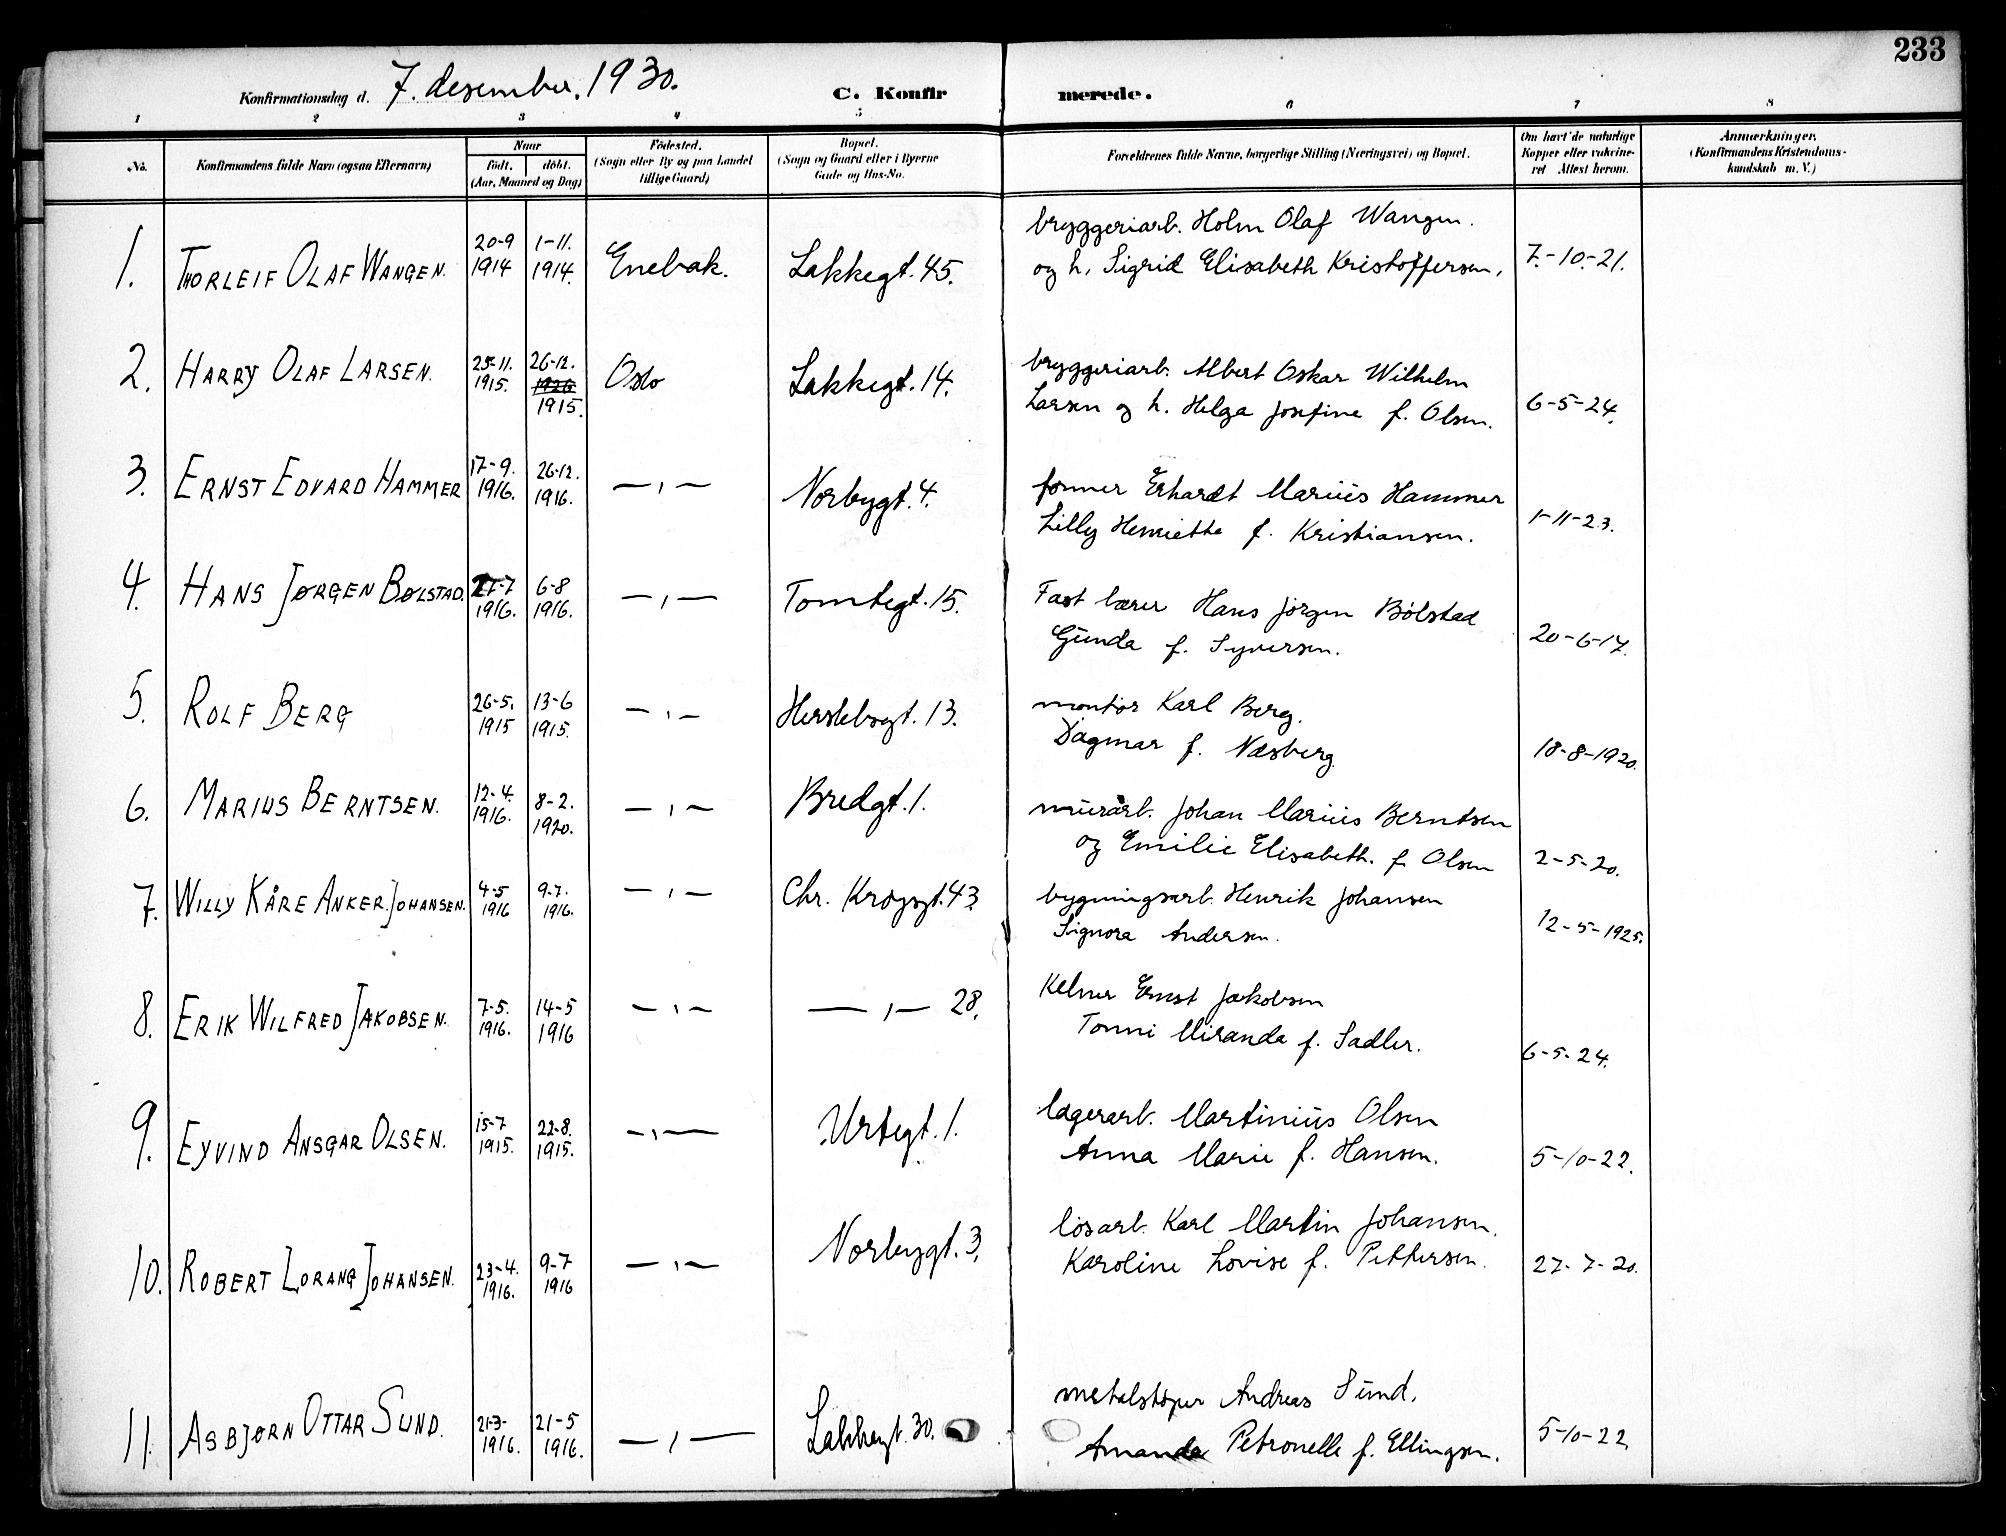 233
Konfirmationsdag d. 7. desember. 1930. C. Konfirmerede.
1 2 3 4 5 6 7 8
No. Konfirmandens fulde Navn (ogsaa Efternavn) Naar født. døbt. (Aar, Maaned og Dag) Fødested. (Sogn eller By og paa Landet tillige Gaard) Bopæl. (Sogn og Gaard eller i Byerne Gade og Hus-No. Forældrenes fulde Navne, borgerlige Stilling (Næringsvei) og Bopæl. Om havt de naturlige Kopper eller vakcineret Attest herom. Anmærkninger. (Konfirmandens Kristendomskundskab m. V.)
1. THORLEIF OLAF WANGEN. 20-9 1914 1-11. 1914. Enebak. Lakkegt. 45. bryggeriarb. Holm Olaf Wangen.
og h. Sigrid Elisabeth Kristoffersen. 7.-10.-21.
2. HARRY OLAF LARSEN. 25-11. 1915. 26-12. 1926 1915. Oslo Lakkegt. 14. bryggeriarb. Albert Oskar Wilhelm
Larsen og h. Helga Josefine f. Olsen. 6-5-24.
3. ERNST EDVARD HAMMER 17-9. 1916. 26-12. 1916. — , — Norbygt. 4. former Erhardt Marius Hammer
Lilly Henriette f. Kristiansen. 1-11-23.
4. HANS JØRGEN BØLSTAD. 27-7 1916. 6-8 1916. — , — Tomtegt. 15. Fast lærer Hans Jørgen Bølstad
Gunda f. Syversen. 20-6-17.
5. ROLF BERG 26-5. 1915 13-6 1915. — , — Herslebsgt. 13. montør Karl Berg.
Dagmar f. Næsberg 18-8-1920.
6. MARIUS BERNTSEN. 12-4. 1916. 8-2. 1920. — , — Bredgt. 1. murarb. Johan Marius Berntsen
og Emilie Elisabeth. f. Olsen 2-5-20.
7. WILLY KÅRE ANKER JOHANSEN. 4-5 1916 9-7. 1916. — , — Chr. Krogsgt. 43. bygningsarb. Henrik Johansen
Signora Andersen. 12-5-1925.
8. ERIK WILFRED JAKOBSEN. 7-5. 1916. 14-5 1916 — , — — , — 28. Kelner Ernst Jakobsen
Tonni Miranda f. Sadler. 6-5-24.
9. EYVIND ANSGAR OLSEN. 15-7 1915. 22-8. 1915. — , — Urtegt. 1. lagerarb. Martinius Olsen
Anna Marie f. Hansen. 5-10-22.
10. ROBERT LORANG JOHANSEN. 23-4. 1916. 9-7 1916 — , — Norbygt. 3. løsarb. Karl Martin Johansen.
Karoline Lovise f. Pettersen. 27-7-20.
11. ASBJØRN OTTAR SUND. 21-3- 1916. 21-5 1916. — , — Lakkegt. 30. metalstøper Andreas Sund.
Amanda Petronelle f. Ellingsen. 5-10-22